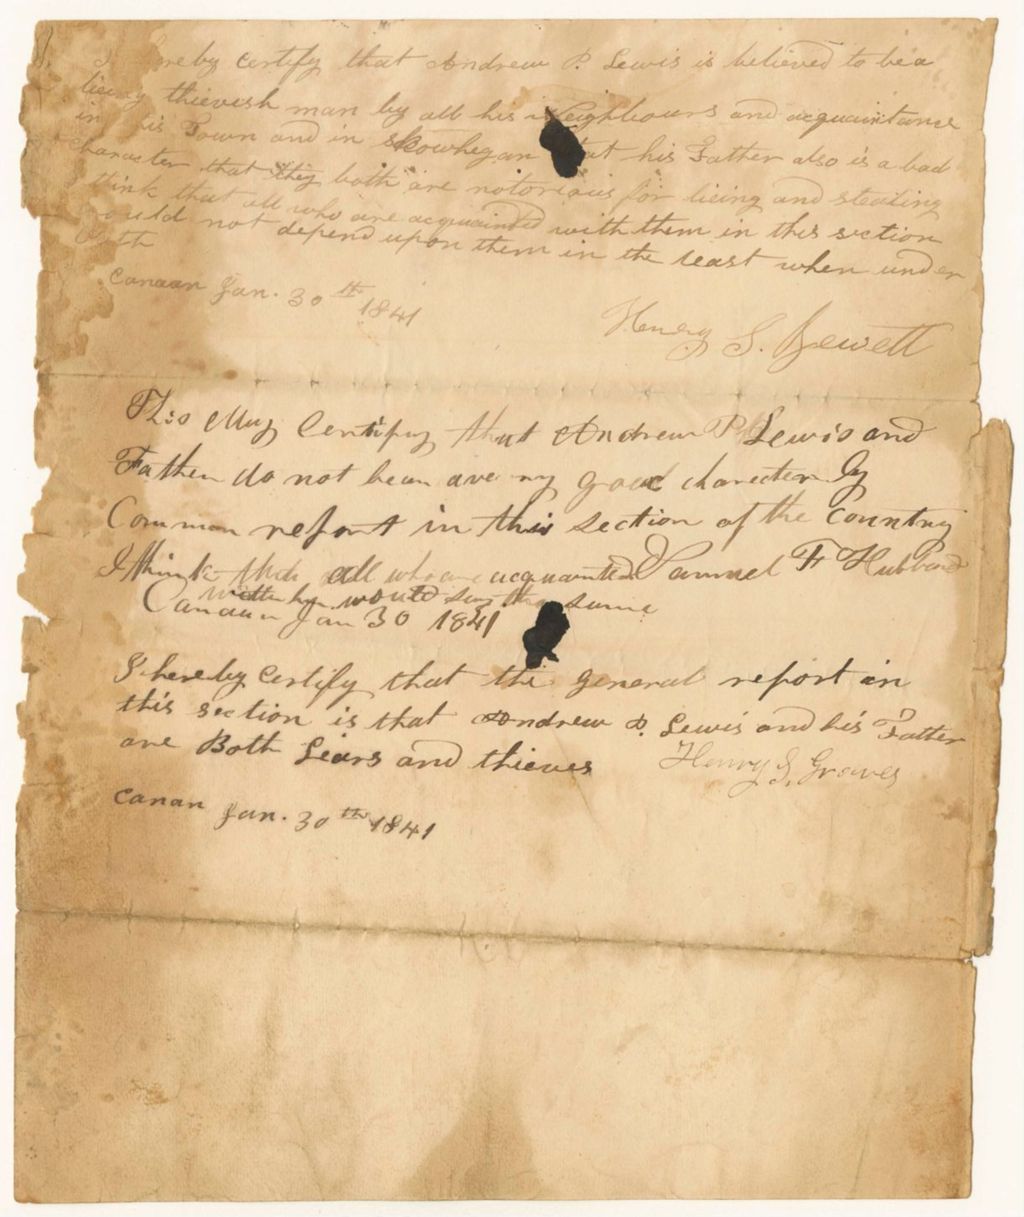 I hereby certify that Andrew P. Lewis is believed to be a
lieing thievish man by all his Neighbours and acquaintance
in this Town and in Skowhegan that his Father also is a bad
character that they both are notorious for lieing and stealing
think that all who are acquainted with them in this section
would not depend upon them in the least when under
Oath
Canaan Jan. 30th 1841
Henry S. Jewett
This May Certify that Andrew P Lewis and
Father do not bear a very good character By
Common report in this section of the Country
I think that all who are acquainted Samuel F Hubbard
with him would say the same
Canaan Jan 30 1841
I hereby certify that the general report in
this section is that Andrew P. Lewis and his Father
are Both Liars and thieves Henry S. Groves
Canan Jan. 30th 1841